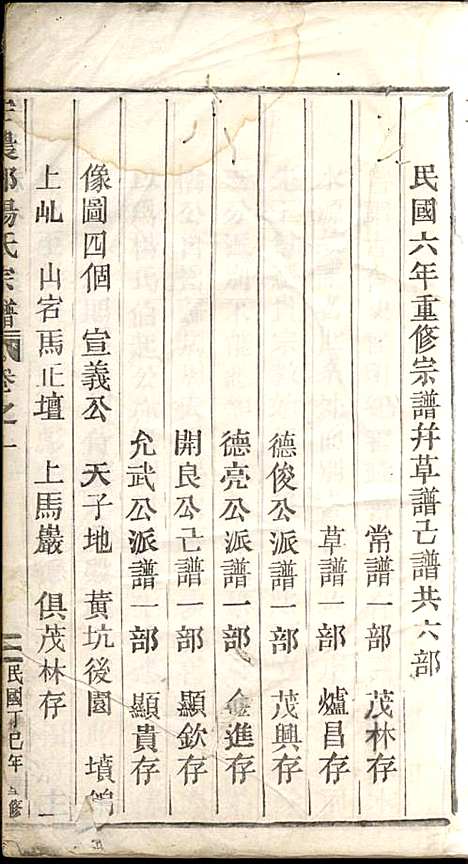 民國六年重修宗譜并草譜亡譜共六部
常譜一部 茂林存
草譜一部 爐昌存
德俊公派譜一部 茂興存
德亮公派譜一部 金進存
開良公亡譜一部 顯欽存
允武公派譜一部 顯貴存
像圖四個 宣義公 天子地 黃坑後園 墳
上屾 山宕馬正壇 上馬巖 俱茂林存
農郡楊氏宗譜 卷之一 民國丁巳年 修